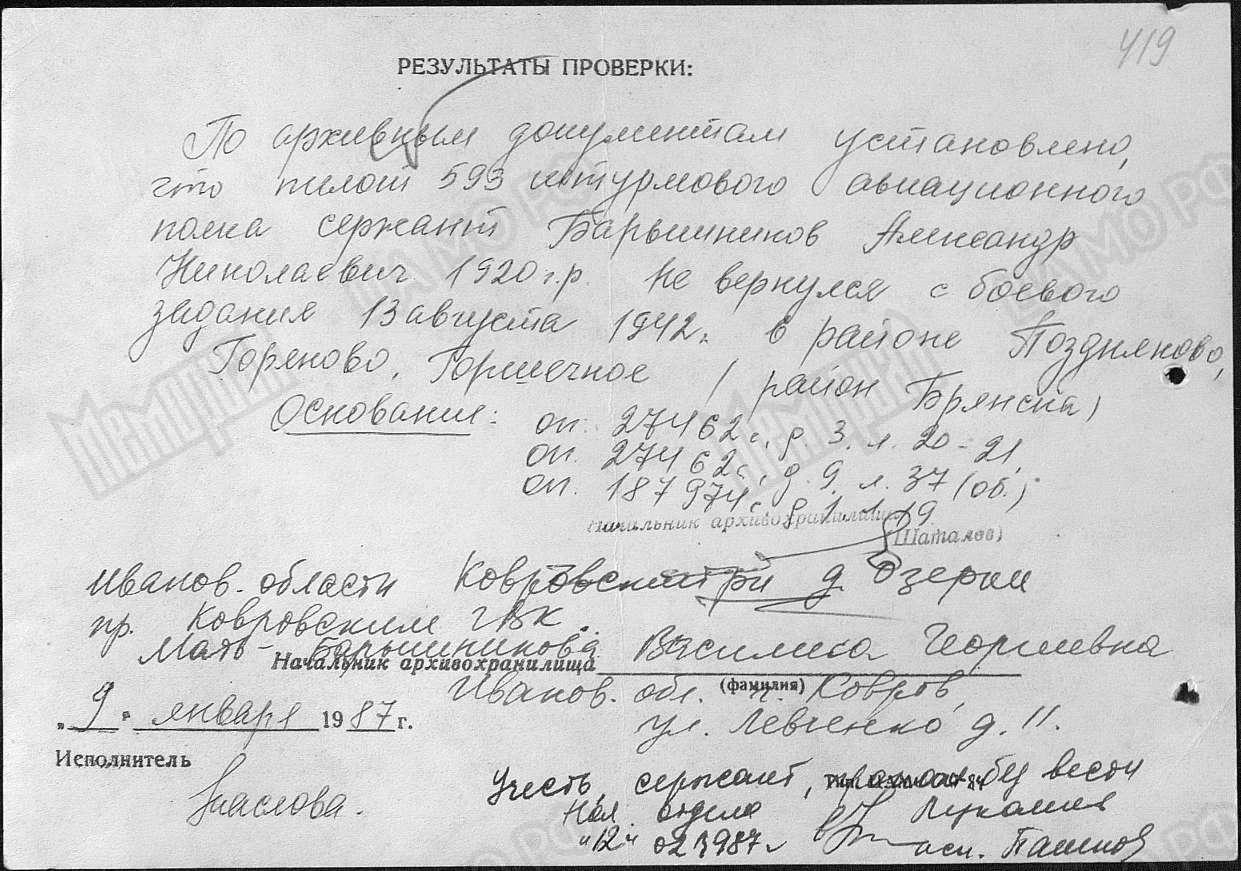 419
РЕЗУЛЬТАТЫ ПРОВЕРКИ:
По архивным документам установлено,
что пилот 593 штурмового авиационного
полка сержант Барышников Александр
Николаевич 1920 г.р. не вернулся с боевого
задания 13 августа 1942г. в районе Поздняково,
Горяново, Горшечное / район Брянска)
Основание: оп. 27462с, д. 3. л. 20-21,
оп. 27462с, д. 9. л. 37 (об.)
оп. 187974с, д 1 л. 19
Начальник архивохранилища
(Шаталов)
Иванов. области Ковровский д. Озерки
пр. Ковровским ГВК.
Мать - Барышникова Василиса Георгиевна
Начальник архивохранилища
(фамилия)
Иванов. обл. г. Ковров,
ул. Левченко, д. 11.
„9" января 1987 г.
Исполнитель
Маслова.
Учесть, сержант, пропал без вести
Нач. отдела Лукашев
"12" 02 1987г исп.
Мемориал
ЦАМО РФ